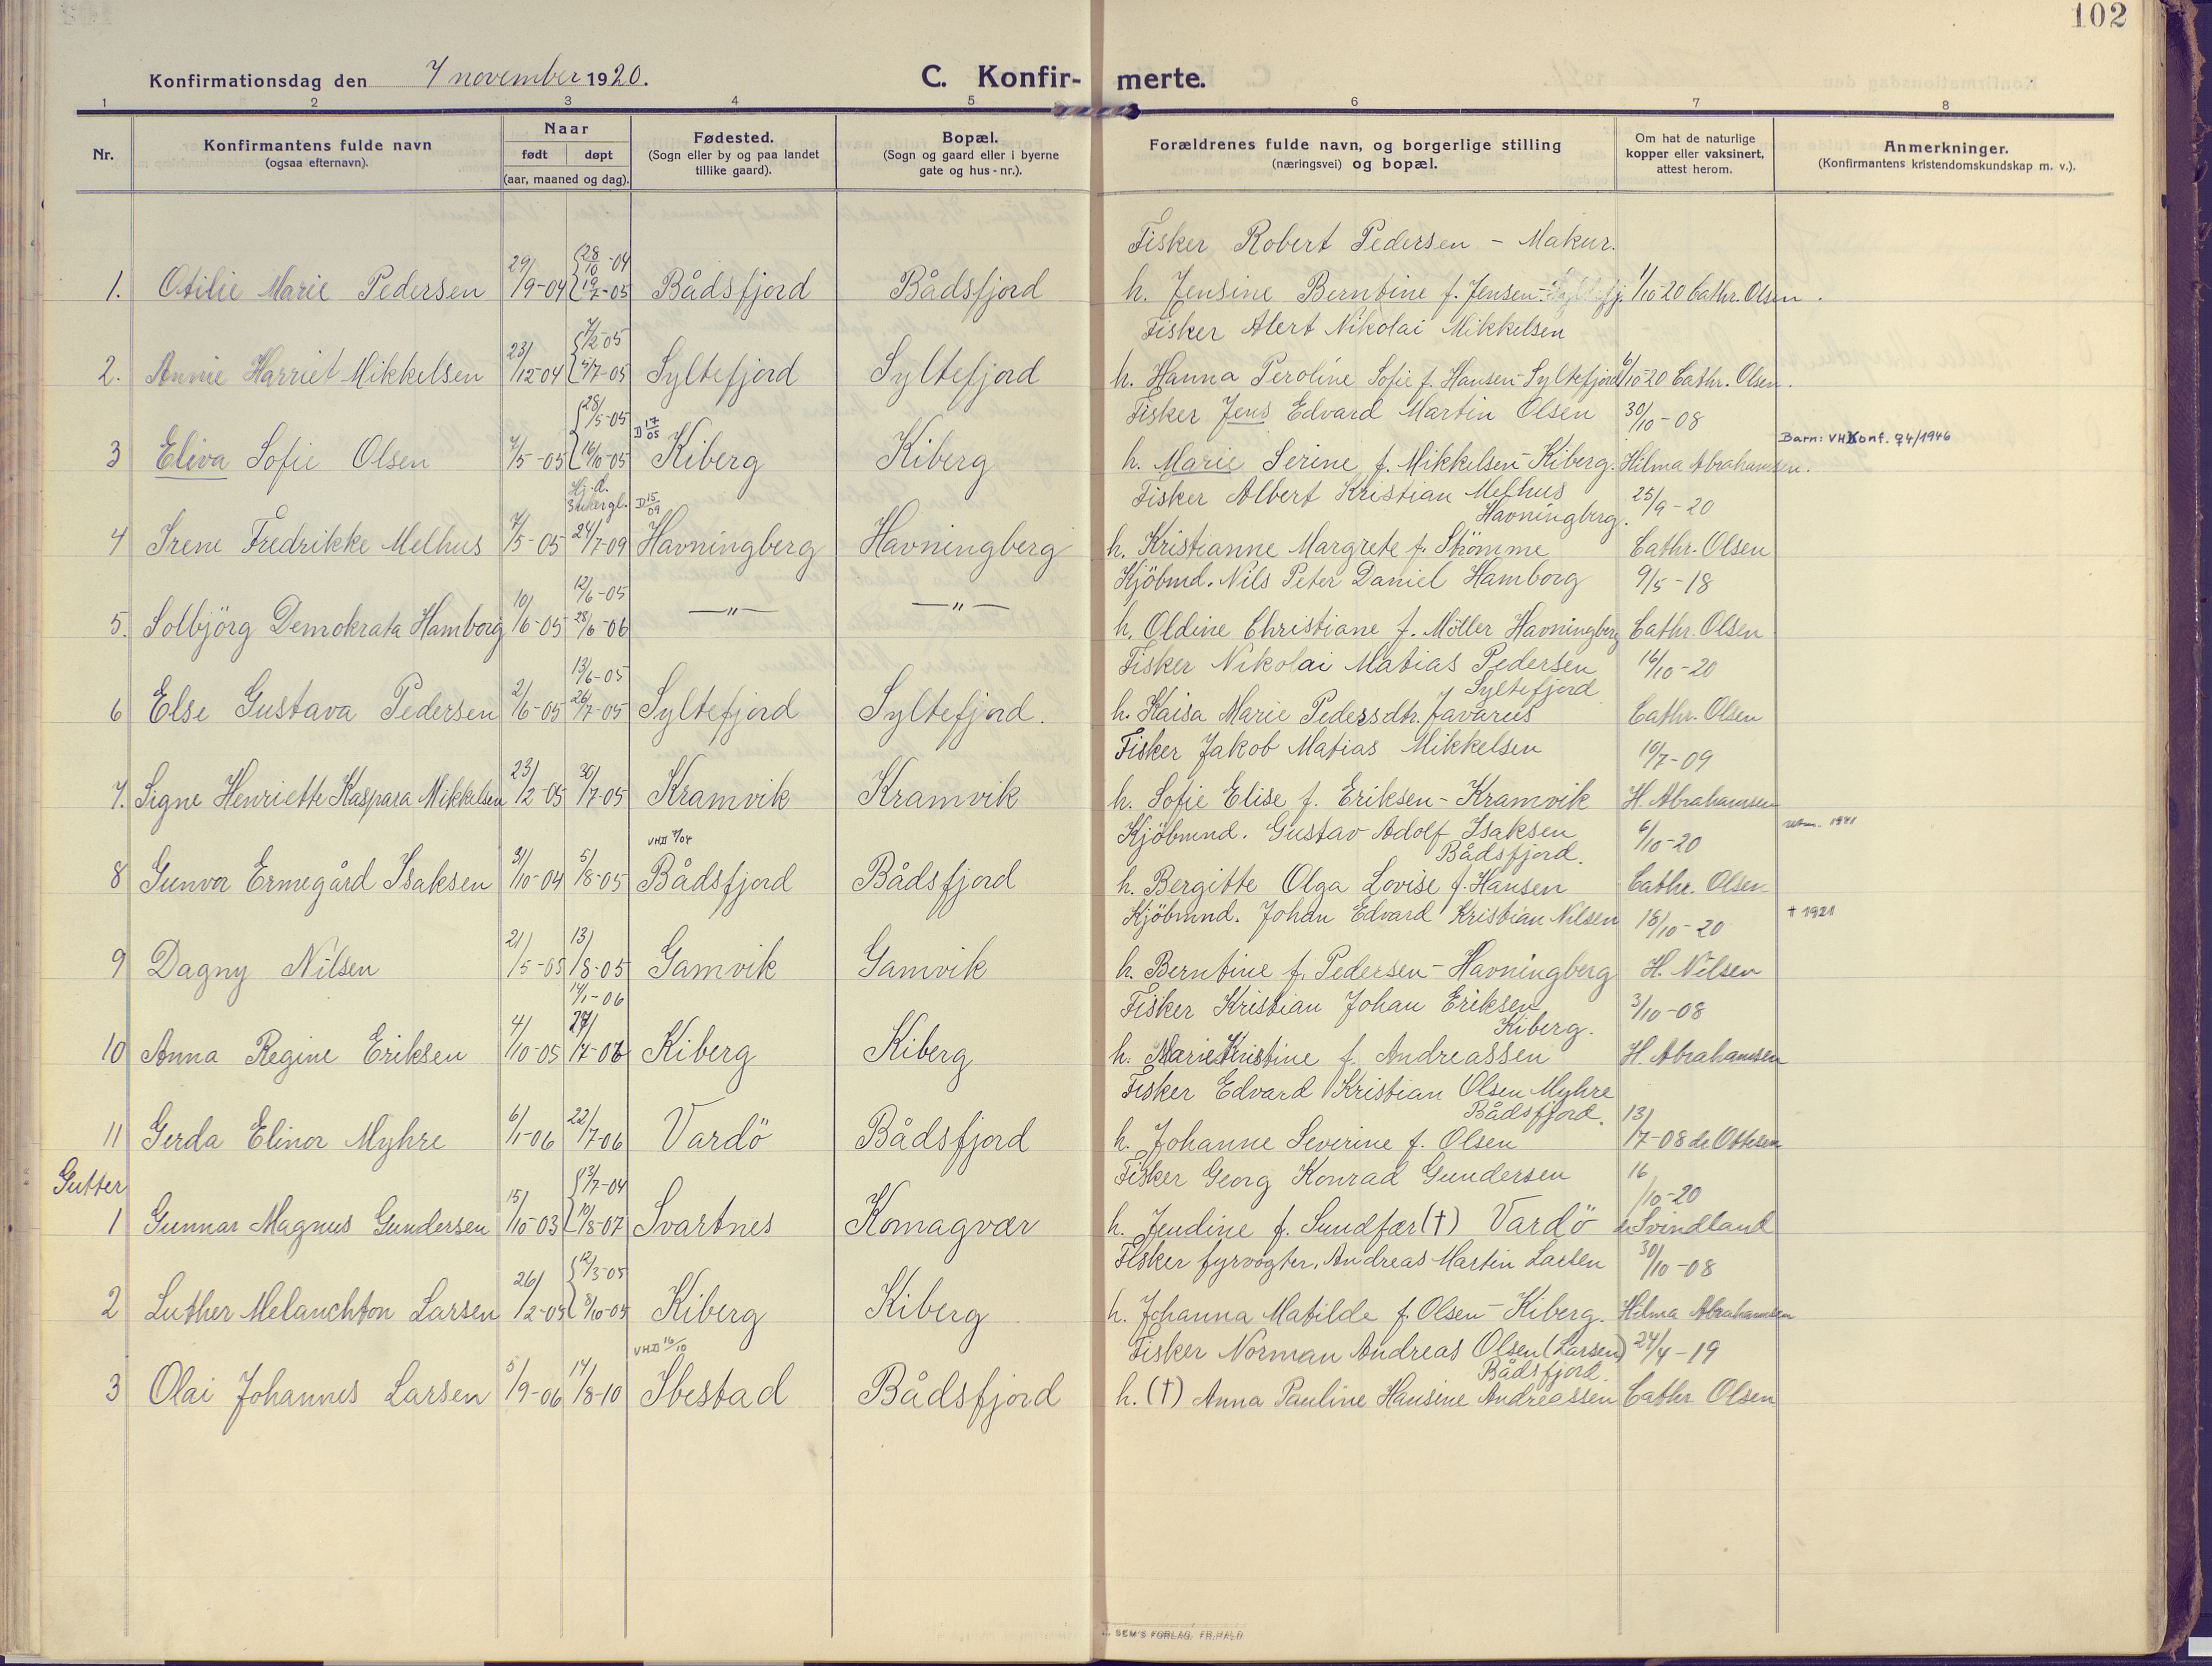 102
Konfirmationsdag den 7 november 1920.
C. Konfir- merte.
1 2 3 4 5 6 7 8
Nr.
Konfirmantens fulde navn
(ogsaa efternavn).
Naar
født døpt
(aar, maaned og dag).
Fødested.
(Sogn eller by og paa landet
tillike gaard).
Bopæl.
(Sogn og gaard eller i byerne
gate og hus-nr.).
Forældrenes fulde navn, og borgerlige stilling
(næringsvei) og bopæl.
Om hat de naturlige
kopper eller vaksinert,
attest herom.
Anmerkninger.
(Konfirmantens kristendomskundskap m. v.).
Fisker Robert Pedersen - Makur.
28/10-04
1. Otilie Marie Pedersen 29/9-04 19/7-05 Bådsfjord Bådsfjord h. Jensine Berntine f. Jensen- 1/10-20 Cathr. Olsen.
7/2-05 Fisker Alert Nikolai Mikkelsen
2. Annie Harriet Mikkelsen 23/12-04 5/7-05 Syltefjord Syltefjord h. Hanna Peroline Sofie f. Hansen-Syltefjord 6/10-20 Cathr. Olsen.
28/5-05 D 17/05 Fisker Jens Edvard Martin Olsen 30/10-08
Barn: VHKonf. 94/1946
3 Eliva Sofie Olsen 7/5-05 16/10-05 Kiberg Kiberg h. Marie Serine f. Mikkelsen-Kiberg. Hilma Abrahamsen.
Hj.d. D 15/09 Fisker Albert Kristian Melhus 25/9-20
Havningberg.
4 Irene Fredrikke Melhus 7/5-05 24/7-09 Havningberg Havningberg h. Kristianne Margrete f. Strömme Cathr. Olsen
12/6-05 Kjöbmd. Nils Peter Daniel Hamborg 9/5-18
5. Solbjörg Demokrata Hamborg 10/6-05 28/6-06 —"— —"— h. Oldine Christiane f. Möller Havningberg Cathr. Olsen
13/6-05 Fisker Nikolai Matias Pedersen 16/10-20
Syltefjord
6 Else Gustava Pedersen 2/6-05 26/7-05 Syltefjord Syltefjord. h. Kaisa Marie Pedersdtr. Javarus Cathr. Olsen
Fisker Jakob Matias Mikkelsen 10/7-09
7. Signe Henriette Kaspara Mikkelsen 23/2-05 30/7-05 Kramvik Kramvik h. Sofie Elise f. Eriksen-Kramvik H. Abrahamsen
VHD 7/04 Kjöbmnd. Gustav Adolf Isaksen 6/10-20 1941
Bådsfjord.
8 Gunvor Ermegård Isaksen 31/10-04 5/8-05 Bådsfjord Bådsfjord h. Bergitte Olga Lovise f. Hansen Cathr. Olsen
Kjöbmnd. Johan Edvard Kristian Nilsen 18/10-20 † 1921
9 Dagny Nilsen 21/5-05 13/8-05 Gamvik Gamvik h. Berntine f. Pedersen-Havningberg H. Nilsen
14/1-06 Fisker Kristian Johan Eriksen 3/10-08
Kiberg.
10 Anna Regine Eriksen 4/10-05 27/7-06 Kiberg Kiberg h. Marie Kristine f. Andreassen H. Abrahamsen
Fisker Edvard Kristian Olsen Myhre
Bådsfjord.
11 Gerda Elinor Myhre 6/1-06 22/7-06 Vardö Bådsfjord h. Johanne Severine f. Olsen 13/7-08 de Ottesen
Gutter 3/7-04 Fisker Georg Konrad Gundersen 16/10-20
1 Gunnar Magnus Gundersen 15/10-03 10/8-07 Svartnes Komagvær h. Jendine f. Sundfær(†) Vardö de Svindland
12/3-05 Fisker fyrvogter, Andreas Martin Larsen 30/10-08
2 Luther Melanchton Larsen 26/2-05 8/10-05 Kiberg Kiberg h. Johanna Matilde f. Olsen-Kiberg. Hilma Abrahamsen
VHD 16/10 Fisker Norman Andreas Olsen (Larsen) 24/4-19
Bådsfjord.
3 Olai Johannes Larsen 5/9-06 14/8-10 Ibestad Bådsfjord h. (†) Anna Pauline Hansine Andreassen Cathr Olsen
SEM'S FORLAG, FR.HALD